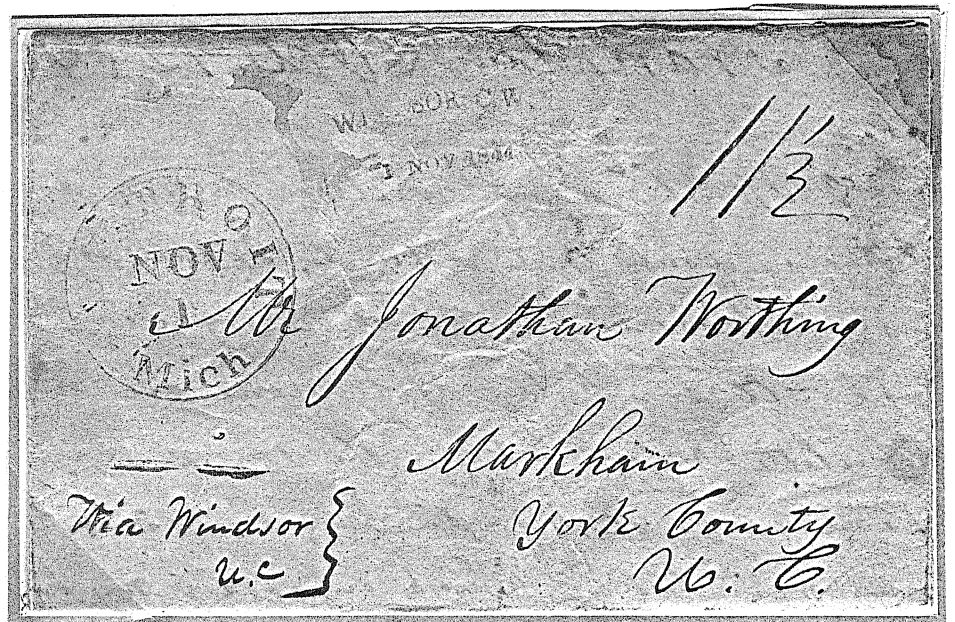 WINDSOR C.W
1 NOV 1844
11½
DETROIT
NOV
1
Mich
Mr Jonathan Worthing
Markham
York County
U. C.
Via Windsor
U.C